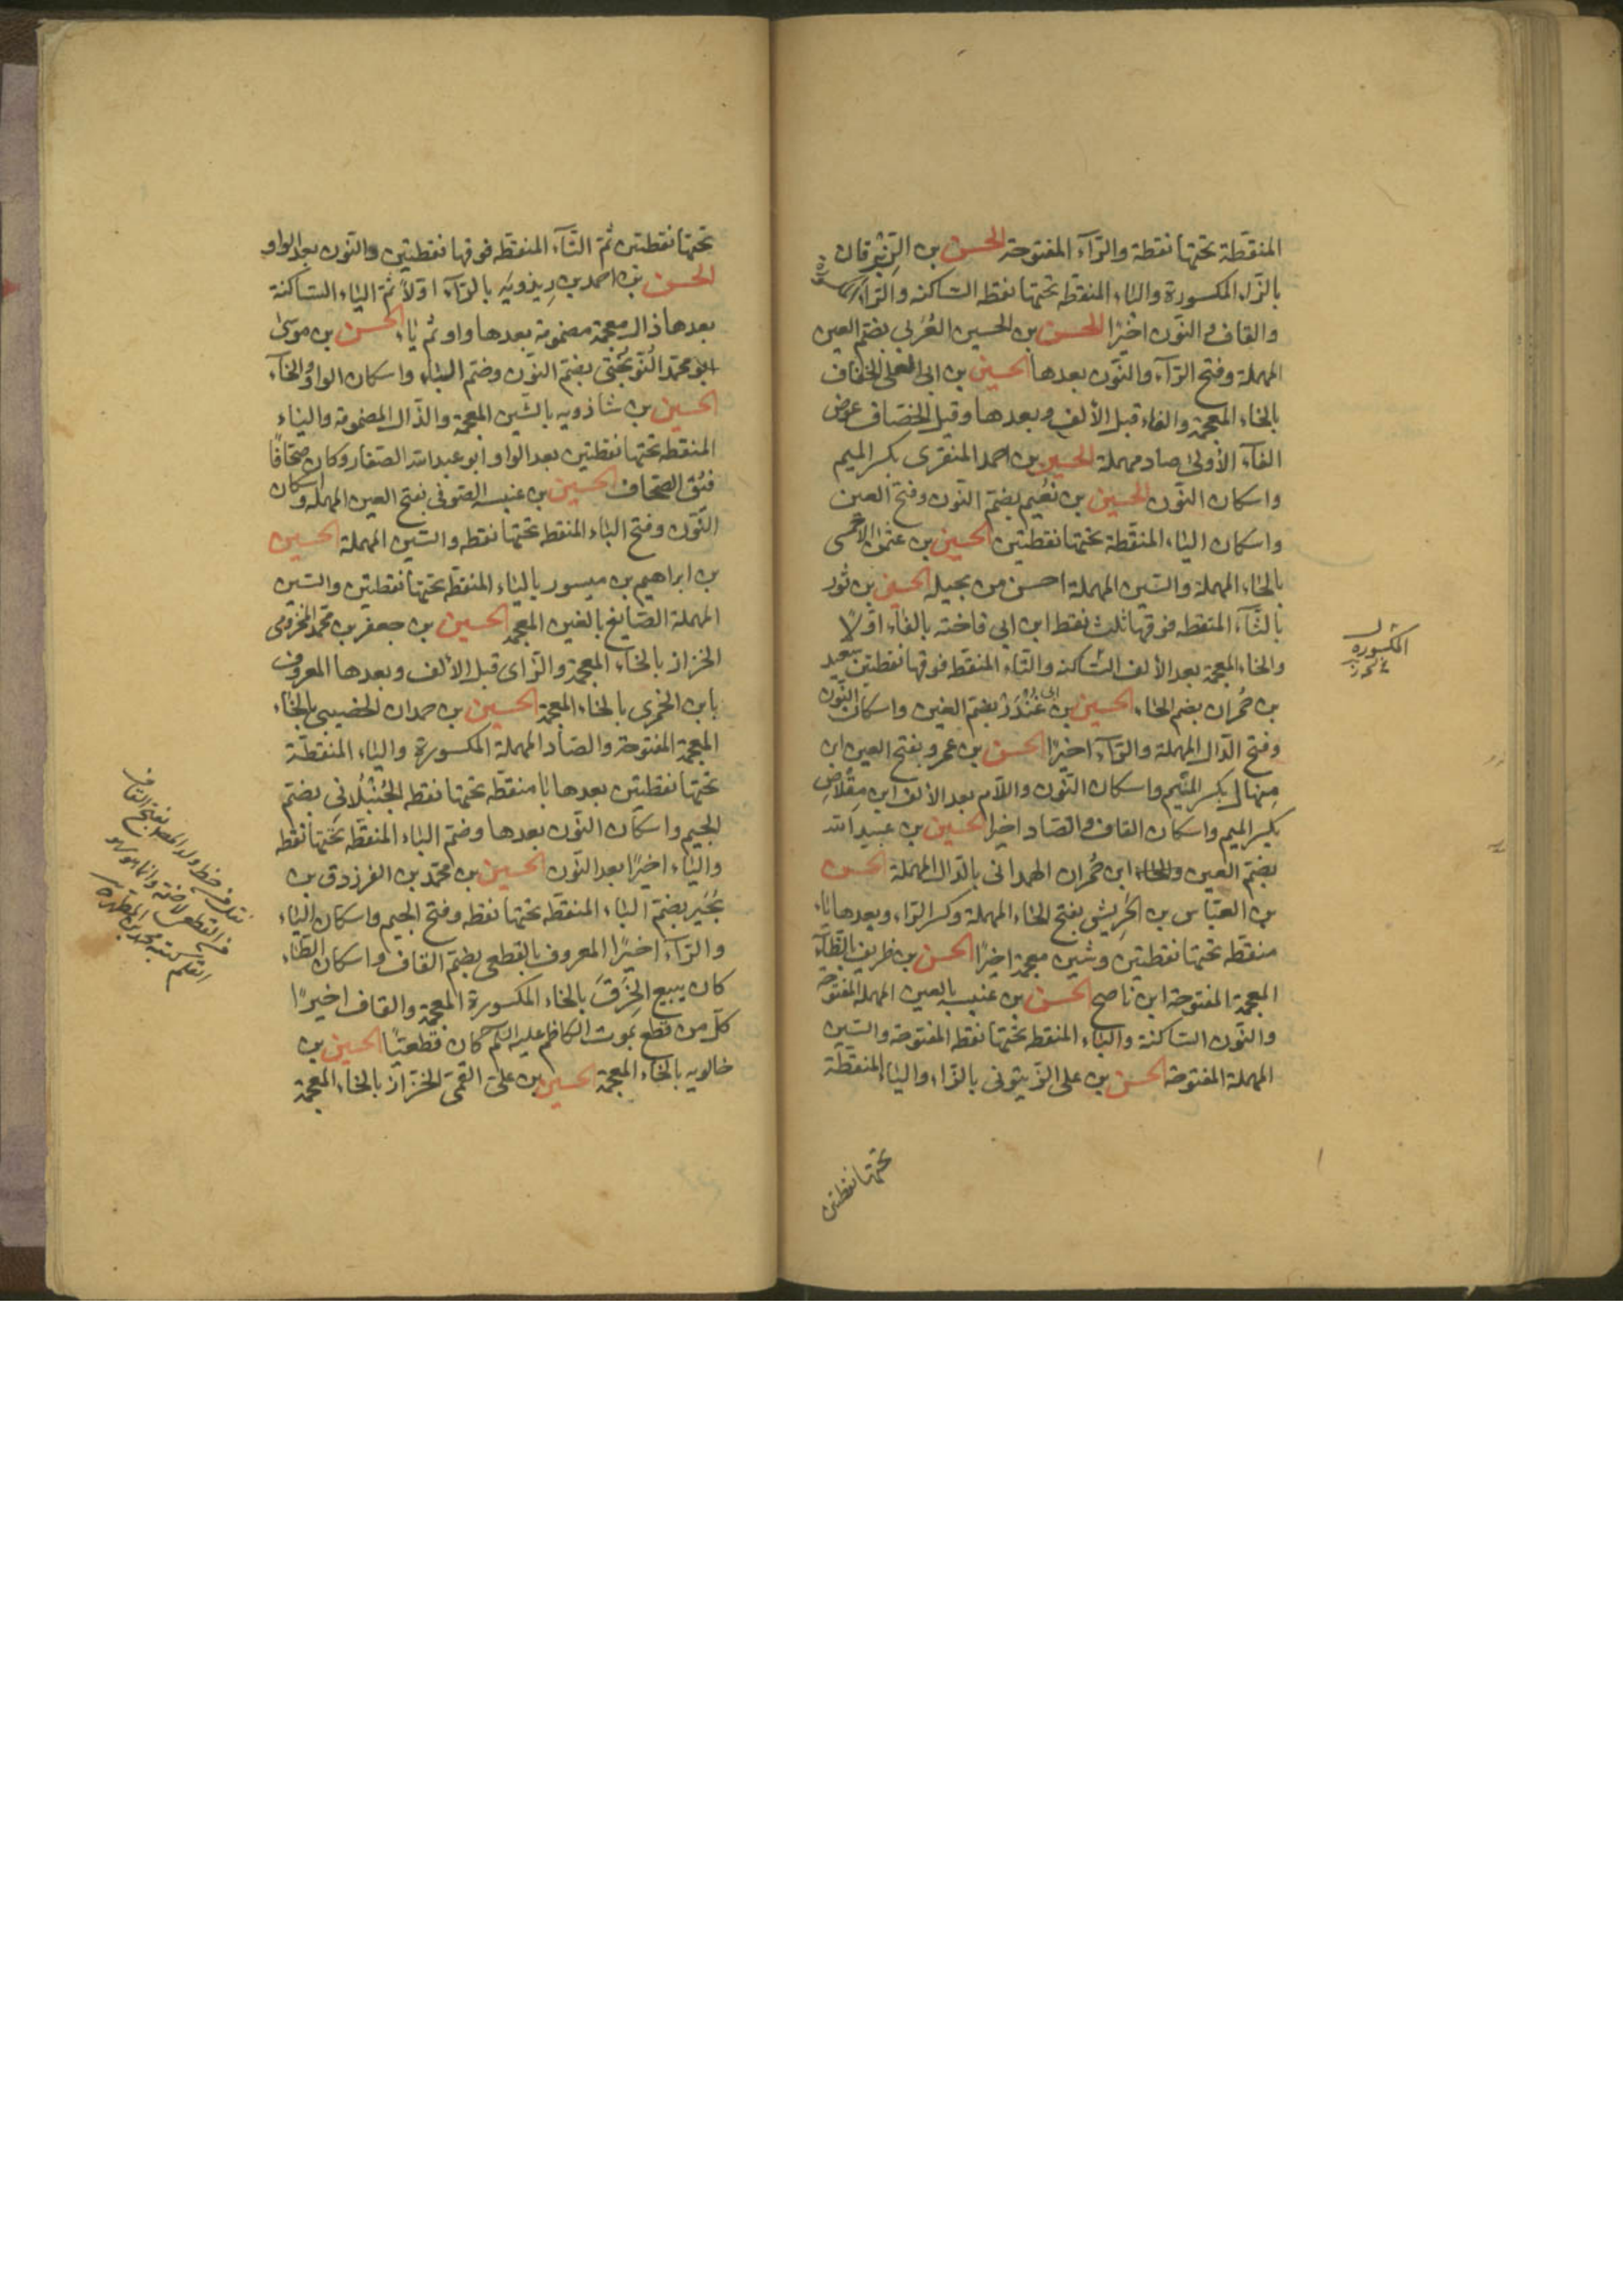 المنقطة تحتها نقطة والرآء المفتوحة الحسن بن الزِبْرِقان
بالزاء المكسورة والباء المنقطه تحتها نقطه الساكنه والراء المكسورة
والقاف والنون اخيرًا الحسن بن الحسين العُرَنى بضم العين
المهملة وفتح الرآء والنون بعدها الحسين بن ابى العلى الخفاف
بالخاء المعجمة والفاء قبل الألف وبعدها وقيل الخصاف عوض
الفآء الأولى صاد مهملة الحسين بن احمد المنقرى بكسر الميم
واسكان النون الحسين بن نُعَيم بضم النون وفتح العين
واسكان الياء المنقطة تحتها نقطتين الحسين بن عثمن الاحمسى
بالحاء المهملة والسين المهملة احسن من بجيله الحسين بن ثور
بالثآء المنقطه فوقها ثلث نقط ابن ابى فاخته بالفآء اوّلا
والخاء المعجمة بعد الألف الساكنه والتاء المنقطه فوقها نقطتين سعيد
بن حُمران بضم الحاء الحسين بن ابى غُنْدَر بضم الغين واسكان النون
وفتح الدال المهملة والرآء اخيرًا الحسن بن عمرو بفتح العين ابن
مِنهال بكسر الميم واسكان النون واللام بعد الألف ابن مِقْلاص
بكسر الميم واسكان القاف والصاد اخيرا الحسين بن عبيد الله
بضم العين والحاء ابن حُمران الهمدانى بالدال المهملة الحسن
بن العبّاس بن الحَرِيش بفتح الحاء المهملة وكسر الراء وبعدها ياء
منقطه تحتها نقطتين وشين معجمة اخيرًا الحسن بن ظريف بالظآء
المعجمة المفتوحة ابن ناصح الحسن بن عنبسه بالعين المهملة المفتوحة
والنون الساكنة والباء المنقطه تحتها نقطه المفتوحة والسين
المهملة المفتوحه الحسن بن على الزيتونى بالزاء والياء المنقطة
تحتها نقطتين
المكسوره
تحتها نقطتين ثم التآء المنقطه فوقها نقطتين والنون بعد الواو
الحسن بن احمد بن رِيذويَه بالرآء اوّلًا ثم الياء الساكنة
بعدها ذال معجمة مضمومة بعدها واو ثم ياء الحسن بن موسى
ابو محمد النوبُختى بضم النون وضم الباء واسكان الواو والخآء
الحسين بن شاذويه بالشين المعجمة والذال المضمومة والياء
المنقطه تحتها نقطتين بعد الواو ابو عبد الله الصفار وكان صحّافًا
فيُق الصحاف الحسين بن عنبسه الصوفى بفتح العين المهملة واسكان
النون وفتح الباء المنقطه تحتها نقطه والسين المهملة الحسين
بن ابراهيم بن ميسور بالياء المنقطه تحتها نقطتين والسين
المهملة الصايغ بالغين المعجمة الحسين بن جعفر بن محمد المخزومى
الخزاز بالخاء المعجمة والزاى قبل الالف وبعدها المعروف
بابن الخمرى بالخاء المعجمة الحسين بن حمدان الخصيبى بالخاء
المعجمة المفتوحة والصاد المهملة المكسورة والياء المنقطة
تحتها نقطتين بعدها با منقطه تحتها نقطه الجُنْبُلانى بضم
الجيم واسكان النون بعدها وضم الباء المنقطه تحتها نقطه
والياء اخيرًا بعد النون الحسين بن محمد بن الفرزدق بن
بُجَير بضم الباء المنقطه تحتها نقطه وفتح الجيم واسكان الياء
والرآء اخيرًا المعروف بالقطعى بضم القاف واسكان الطاء
كان يبيع الخِرَقَ بالخاء المكسورة المعجمة والقاف اخيرًا
كل من قطع بموت الكاظم عليه السلم كان قطعيًّا الحسين بن
خالويه بالخاء المعجمة الحسين بن على القمى الخزاز بالخاء المعجمة